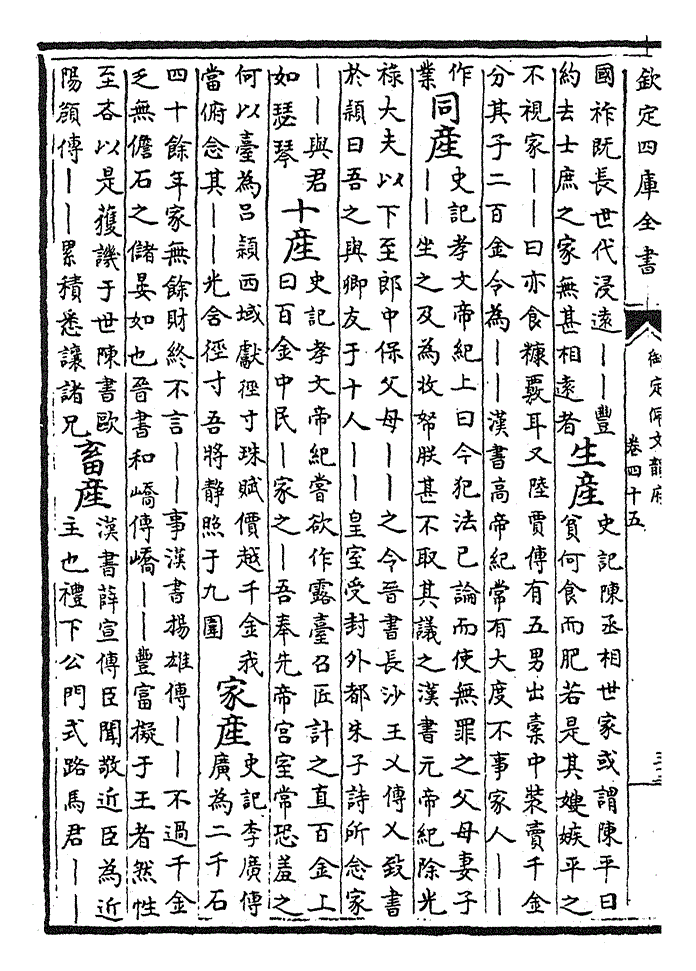 欽定四庫全書
御定佩文韻府
卷四十五
國祚既長世代浸遠——豐
約去士庶之家無甚相遠者
生産
史記陳丞相世家或謂陳平曰
貧何食而肥若是其嫂嫉平之
不視家——曰亦食糠覈耳又陸賈傳有五男出橐中裝賣千金
分其子二百金令為——漢書高帝紀常有大度不事家人——
作
業
同産
史記孝文帝紀上曰今犯法已論而使無罪之父母妻子
——坐之及為收帑朕甚不取其議之漢書元帝紀除光
祿大夫以下至郎中保父母——之令晉書長沙王乂傳乂致書
於頴曰吾之與卿友于十人——皇室受封外都朱子詩所念家
——與君
如瑟琴
十産
史記孝文帝紀嘗欲作露臺召匠計之直百金上
曰百金中民—家之—吾奉先帝宮室常恐羞之
何以臺為呂頴西域獻徑寸珠賦價越千金我
當俯念其——光含徑寸吾將静照于九圍
家産
史記李廣傳
廣為二千石
四十餘年家無餘財終不言——事漢書揚雄傳——不過千金
乏無儋石之儲晏如也晉書和嶠傳嶠——豐富擬于王者然性
至吝以是獲譏于世陳書歐
陽頠傳——累積悉讓諸兄
畜産
漢書薛宣傳臣聞敬近臣為近
主也禮下公門式路馬君——